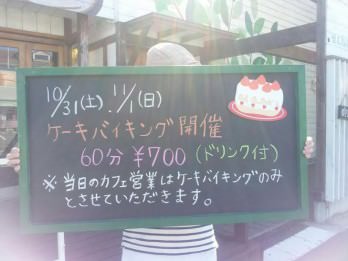 10/31(土). 11/1(日)
ケーキバイキング開催
60分 ¥700 (ドリンク付)
※ 当日のカフェ営業はケーキバイキングのみ
とさせていただきます。